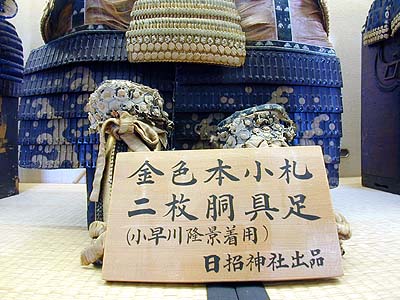 金色本小札
二枚胴具足
(小早川隆景着用)
日招神社出品